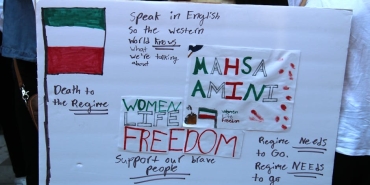 Speak in English
So the western
World knows
what
we're talking
about
Death to
the Regime
MAHSA
AMINI
WOMEN
LIFE
FREEDOM
Support our brave
people
Regime NEEDS
to Go.
Regime NEEDS
to go